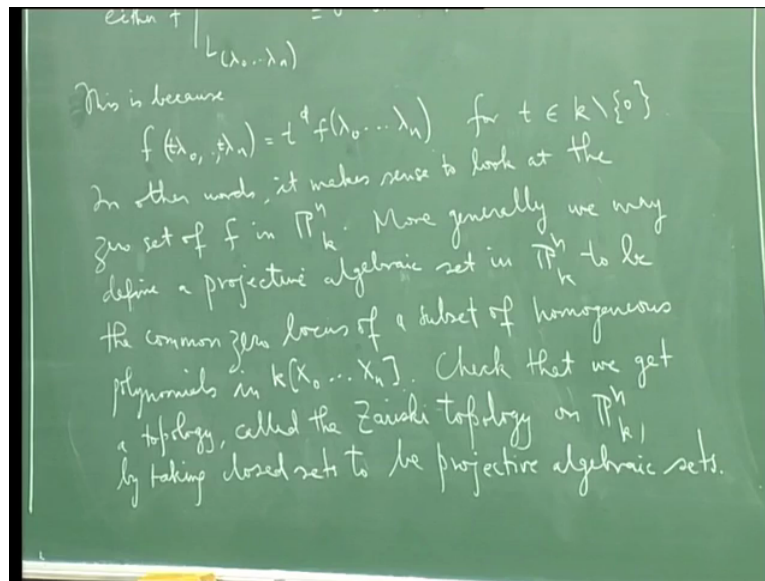 either f |
L(λ₀...λₙ)
This is because
f(tλ₀,..,tλₙ) = t^d f(λ₀...λₙ) for t ∈ k\{0}.
In other words, it makes sense to look at the
zero set of f in ℙⁿₖ. More generally we may
define a projective algebraic set in ℙⁿₖ to be
the common zero locus of a subset of homogeneous
polynomials in k[X₀...Xₙ]. Check that we get
a topology, called the Zariski topology on ℙⁿₖ,
by taking closed sets to be projective algebraic sets.